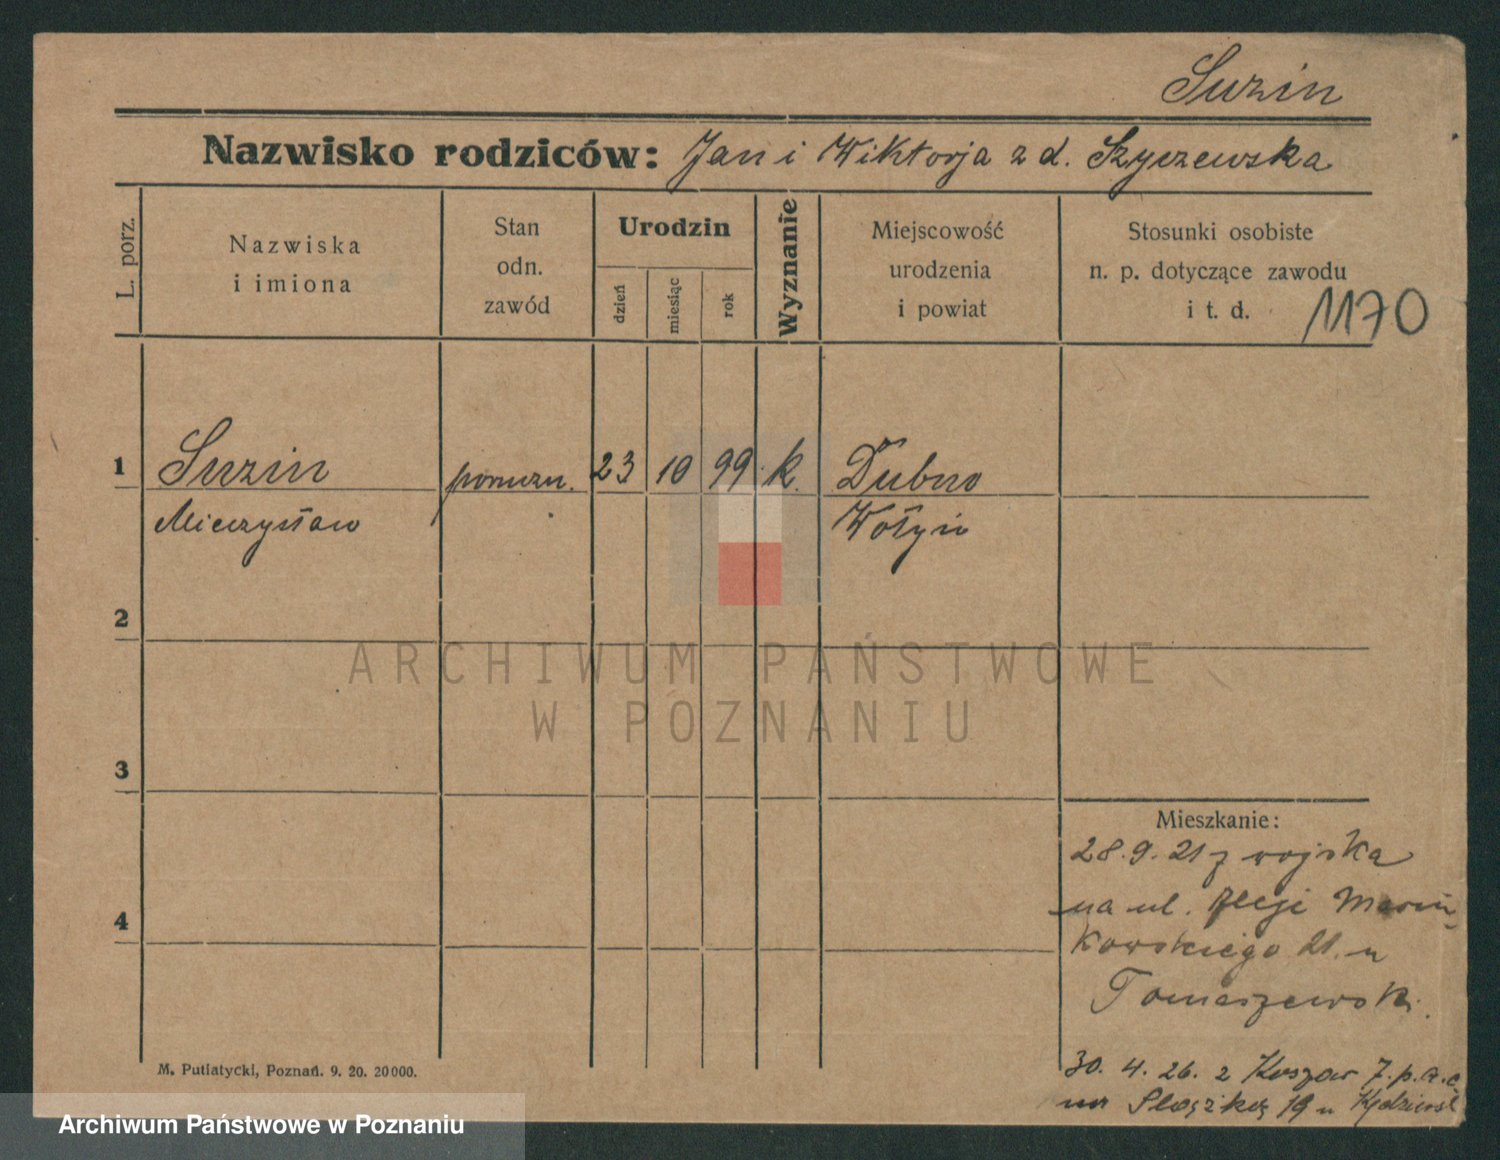 Suzin
Nazwisko rodziców: Jan i Wiktorja z d. Szyszewska
L. porz.
Nazwiska
i imiona
Stan
odn.
zawód
Urodzin
dzień
miesiąc
rok
Wyznanie
Miejscowość
urodzenia
i powiat
Stosunki osobiste
n. p. dotyczące zawodu
i t. d.
1170
1 Suzin 23 10 99 k. Dubno
Mieczysław Wołyń
2
3
4
ARCHIWUM PAŃSTWOWE
W POZNANIU
Mieszkanie:
28.9.21 z wojska
na ul. Aleje Marcin-
kowskiego 21. u
Tomaszewski.
30. 4. 26. z Koszar 7.p.a.c
na 19 u
M. Putiatycki, Poznań. 9. 20. 20000.
Archiwum Państwowe w Poznaniu